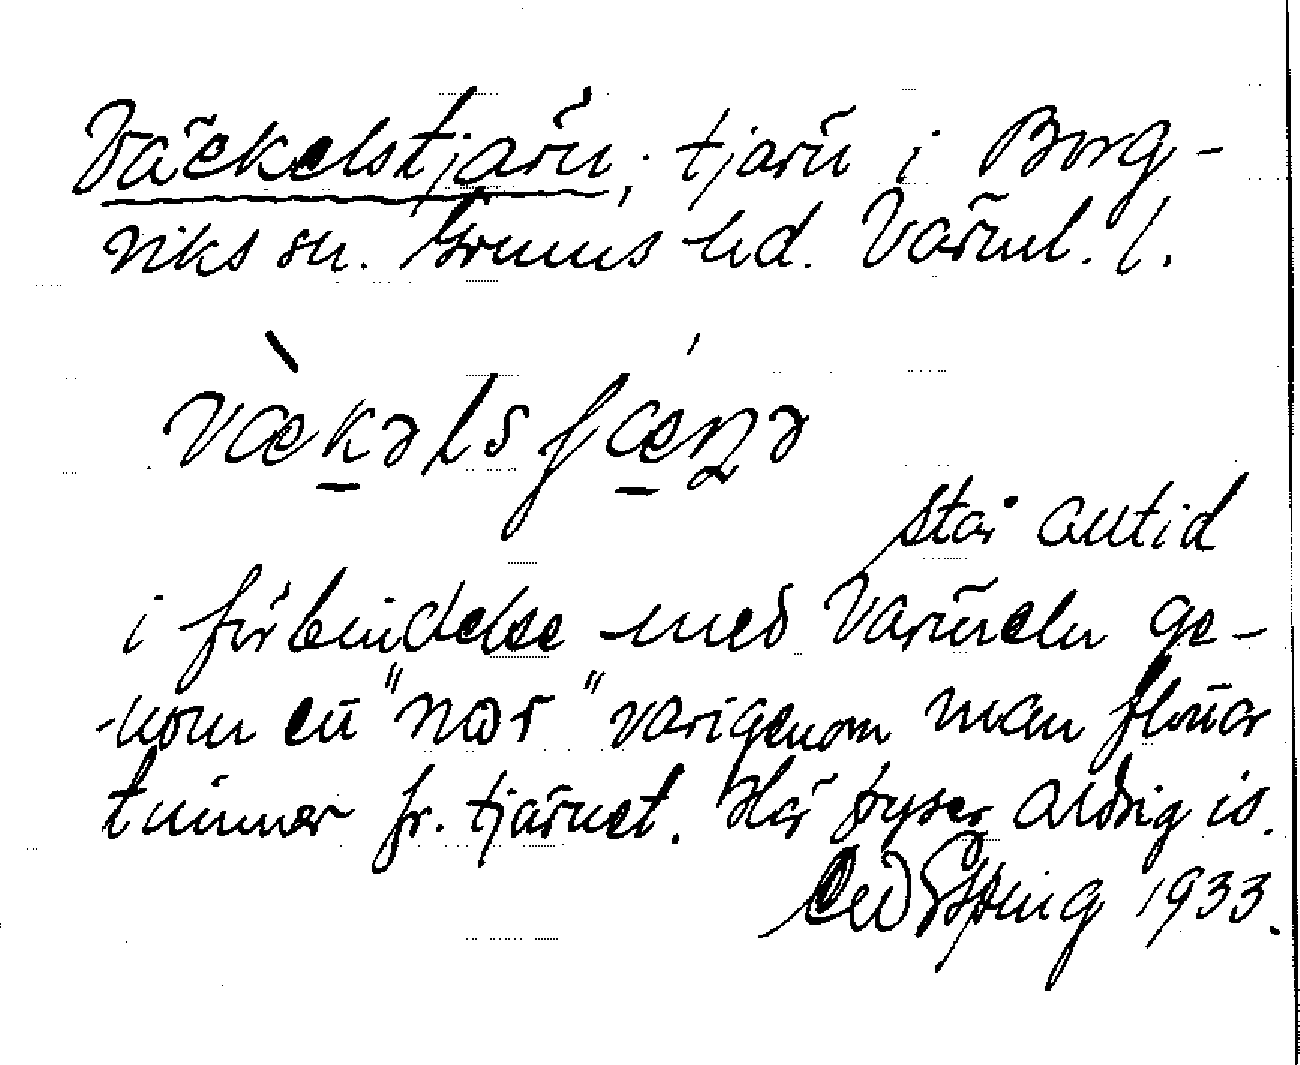 Väckelstjärn, tjärn i Borg-
viks sn. Grums hd. Värml. l.
vækəlsʃæɳə
står alltid
i förbindelse med Värmeln ge-
nom en "nor" varigenom man flottar
timmer fr. tjärnet. Här fryser aldrig is.
1933.